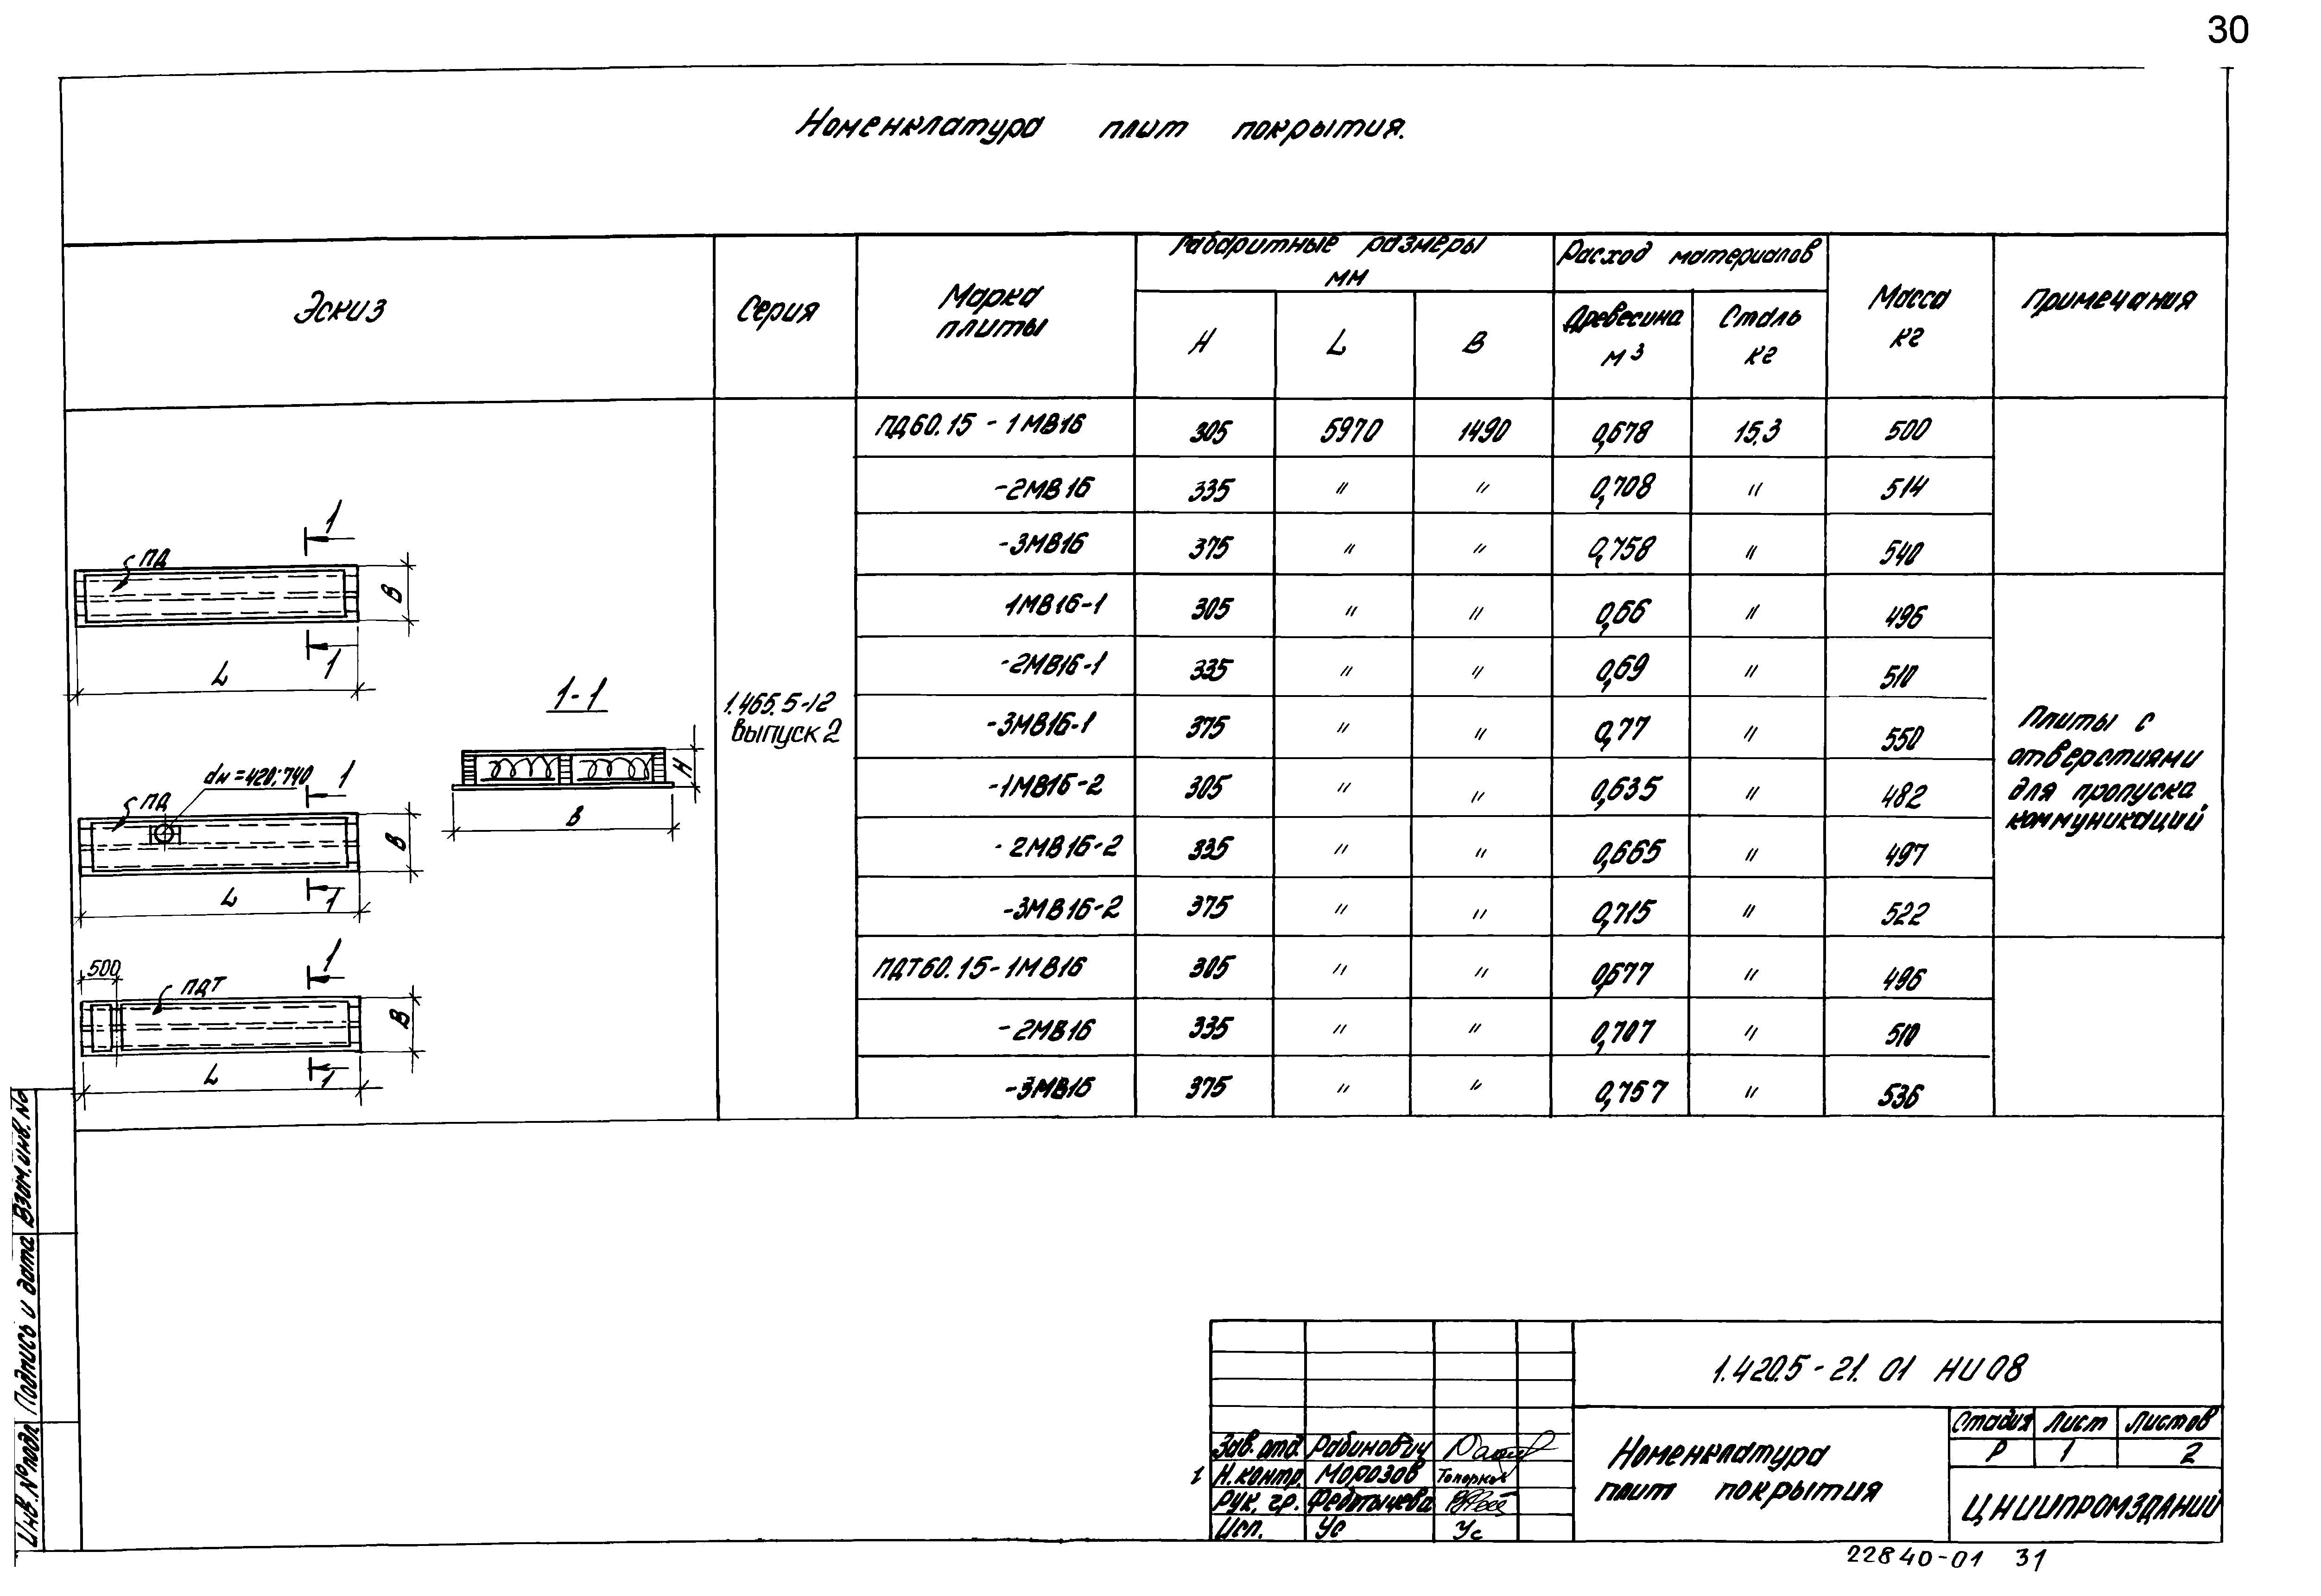 30
Номенклатура плит покрытия.
Эскиз
Серия
Марка плиты
Габаритные размеры мм
Расход материалов
Масса кг
Примечания
H L B
Древесина м³
Сталь кг
ПД60.15 - 1МВ16 305 5970 1490 0,678 15,3 500
-2МВ16 335 " " 0,708 " 514
-3МВ16 375 " " 0,758 " 540
1МВ16-1 305 " " 0,66 " 496
-2МВ16-1 335 " " 0,69 " 510
-3МВ16-1 375 " " 0,77 " 550
-1МВ16-2 305 " " 0,635 " 482
-2МВ16-2 335 " " 0,665 " 497
-3МВ16-2 375 " " 0,715 " 522
ПДТ60.15-1МВ16 305 " " 0,677 " 496
-2МВ16 335 " " 0,707 " 510
-3МВ16 375 " " 0,757 " 536
1.465.5-12
выпуск 2
Плиты с
отверстиями
для пропуска
коммуникаций
1
ПД
B
1
L
1-1
H
B
dн=420;740
1
ПД
B
L
1
500
ПДТ
1
B
L
1
Взам.инв.№
Подпись и дата
Инв.№подл
1.420.5-21.01 НИ08
Зав.отд. Рабинович
1 Н.контр. Морозов Топорков
Рук.гр.
Исп. Ус Ус
Номенклатура
плит покрытия
Стадия Лист Листов
Р 1 2
ЦНИИПРОМЗДАНИЙ
22840-01 31